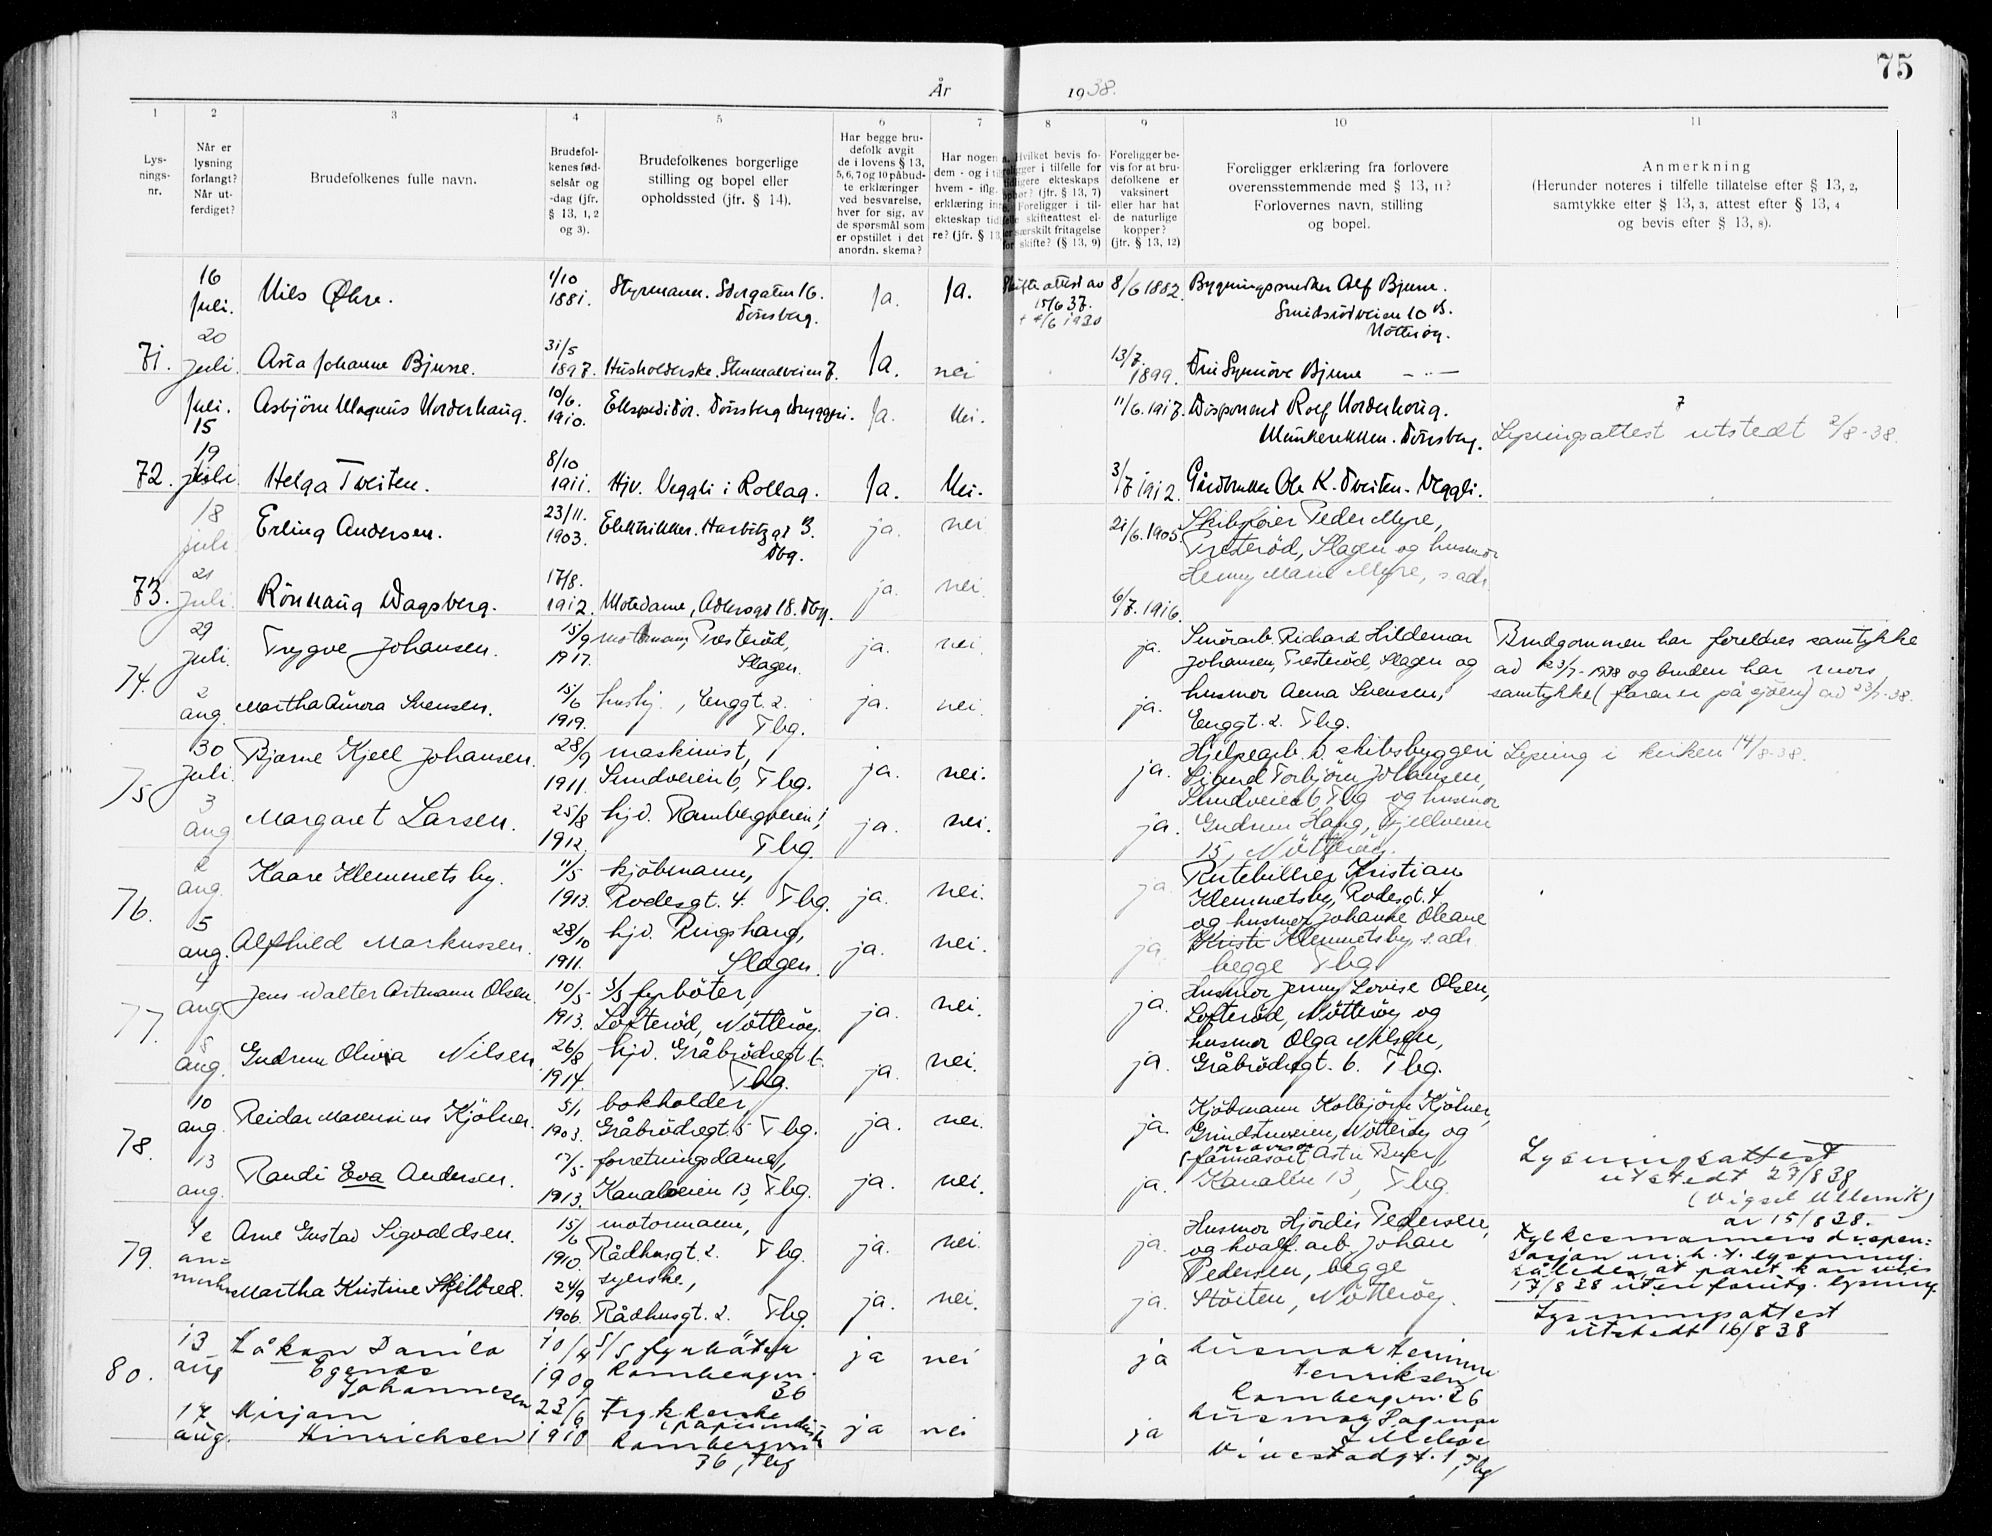 75
År 1938.
1 2 3 4 5 6 7 8 9 10 11
Lys-
nings-
nr.
Når er
lysning
forlangt?
Når ut-
ferdiget?
Brudefolkenes fulle navn.
Brudefol-
kenes fød-
selsår og
-dag (jfr.
§ 13, 1, 2
og 3).
Brudefolkenes borgerlige
stilling og bopel eller
opholdssted (jfr. § 14).
Har begge bru-
defolk avgit
de i lovens § 13,
5, 6, 7 og 10 påbud-
te erklæringer
ved besvarelse,
hver for sig, av
de spørsmål som
er opstillet i det
anordn. skema?
Har nogen
dem - og i
hvem - iflg.
erklæring
ekteskap tid
re? (jfr. § 13
Hvilket bevis fo-
i tilfelle for
ekteskaps
(jfr. § 13, 7)
Foreligger i til-
skifteattest el-
særskilt fritagelse
skifte? (§ 13, 9)
Foreligger be-
vis for at bru-
defolkene er
vaksinert
eller har hat
de naturlige
kopper?
(jfr. § 13, 12)
Foreligger erklæring fra forlovere
overensstemmende med § 13, 11?
Forlovernes navn, stilling
og bopel.
Anmerkning
(Herunder noteres i tilfelle tillatelse efter § 13, 2,
samtykke efter § 13, 3, attest efter § 13, 4
og bevis efter § 13, 8).
16 Juli. Nils Øhre. 1/10 1881. Styrmann. Storgaten 16. Tönsberg. Ja. Ja. Skifteattest av 15/6 37. + 4/6 1930 8/6 1882. Bygningssnekker Alf Bjune. Smidsrödveien 10 B. Nötteröy.
71. 20 Juli. Asta Johanne Bjune. 31/5 1897. Husholderske. 7. Ja. nei 13/7 1899. Bjune - " -
Juli. 15 Asbjörn Magnus Norderhaug. 10/6. 1910. Ekspeditör. Tönsberg Bryggeri. Ja. Nei. 11/6. 1917. Disponent Rolf Norderhaug. Munkerekken. Tönsberg. Lysningsattest utstedt 2/8-38.
72. 19 Juli Helga Tveiten. 8/10 1911. Hjv. Veggli i Rollag. Ja. Nei. 3/7 1912. Gårdbruker Ole K. Tveiten. Veggli.
18 juli Erling Andersen. 23/11. 1903. Elektriker. Harbitzgt 3. Tbg. ja. nei 21/6. 1905. Skibsfører Peder Myre, Presterød, Slagen og husmor Henny Marie Myre, s. adr.
73. 21 Juli. Rönnaug Dagsberg. 17/8. 1912. Motedame, 18. Tbg. ja. nei. 6/7. 1916.
74. 29 Juli. Trygve Johansen. 15/9 1917. motormann, Presterød, Slagen. ja. nei. ja. Smörarb. Richard Hildemar Johansen, Presterød, Slagen og Brudgommen har foreldres samtykke
av 23/7-1938 og bruden har mors
samtykke (faren er på sjöen) av 23/7-38.
2 aug. Martha Aurora Svensen. 15/6 1919. hushj., Enggt. 2. Tbg. ja. nei. ja. husmor Anna Svensen, Enggt. 2. Tbg.
75 30 Juli. Bjarne Kjell Johansen. 28/9 1911. maskinist, Sundveien 6, Tbg. ja. nei. ja. Hjelpearb. v. skibsbyggeri Sigurd Torbjörn Johansen, Sundveien 6 Tbg og husmor Lysning i kirken 14/8-38.
3 aug Margaret Larsen. 25/8 1912. hjv. Rambergveien 1, Tbg. ja. nei. ja. Gudrun Haug, Fjellveien 15, Nötteröy.
76. 2 aug. Kaare Klemmetsby. 11/5 1913. kjöbmann, Rodesgt. 4. Tbg. ja. nei. ja. Rutebileier Kristian Klemmetsby, Rodesgt. 4 og husmor Johanne Oleane
5 aug. Alfhild Markussen. 28/10 1911. hjv. Ringshaug, Slagen. ja. nei. ja. Klemmetsby s. adr. begge Tbg
77. 4 aug Jens Walter Artmann Olsen. 10/5 1913. s/s fyrböter, Lofteröd, Nötteröy. ja. nei. ja. Husmor Jenny Lovise Olsen, Lofteröd, Nötteröy og
5 aug. Gudrun Olivia Nilsen. 26/8 1914. hjv. Gråbrödregt 6. Tbg. ja. nei. ja. husmor Olga Nilsen, Gråbrödregt. 6. Tbg.
78. 10 aug. Reidar Maurentius Kjölner. 5/1 1903. bokholder, Gråbrödregt. 5 Tbg. ja. nei. ja. Kjöbmann Kolbjörn Kjölner, Grindstuveien, Nötteröy og
13 aug. Randi Eva Andersen. 17/5 1913. forretningsdame, Kanalveien 13, Tbg. ja. nei. ja. Kanalen 13, Tbg. Lysningsattest
utstedt 27/8 38
(Vigsel Ullernik)
av 15/8 38.
79. se an- merkn Arne Gustav Sigvaldsen. 15/6 1910. motormann, Rådhusgt. 2. Tbg. ja. nei. ja. Husmor Hjördis Pedersen, og hvalf. arb. Johan Fylkesmannens dispen-
sasjon m. h. t. lysning.
således at paret kan vies
17/8 38 uten foruttg. lysning.
Martha Kristine Skjelbred. 24/9 1906. syerske, Rådhusgt. 2. Tbg. ja. nei. ja. Pedersen, begge Stöiten, Nötteröy.
Lysningsattest
utstedt 16/8 38
80. 13 aug Håkon Danilo Egenæs Johannesen 10/4 1909 s/s fyrböter Rambergvn. 36 ja nei ja husmor Henriksen Rambergvn. 36
17 aug. Mirjam Hinrichsen 23/6 1910 Trykkerske (papirindustri) Rambergvn 36, Tbg ja nei ja husmor Dagmar Vinestadgt. 1, Tbg